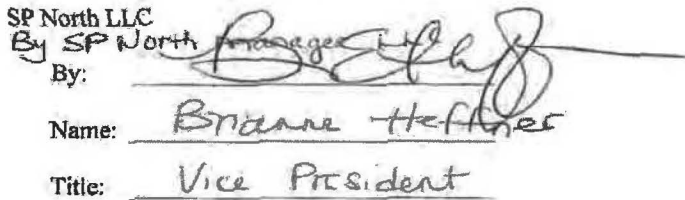 SP North LLC
By SP North Manager LLC
By:
Name: Brianne Heffner
Title: Vice President